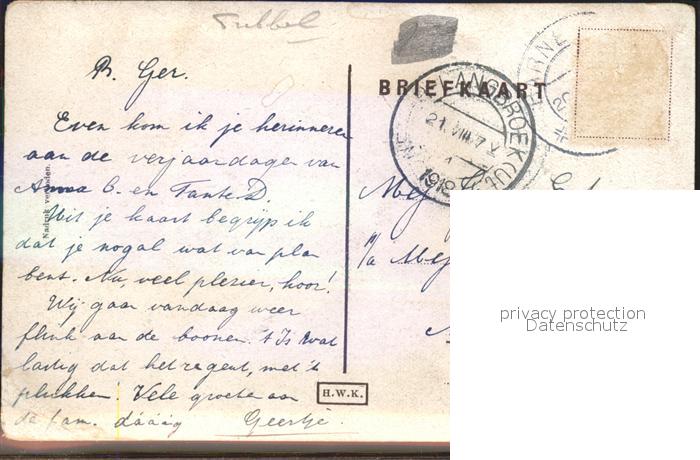 Dubbel
B. Ger.
BRIEFKAART
Even kom ik je herinneren
aan de verjaardagen van
Anna C. en Tante D.
Uit je kaart begrijp ik
dat je nogal wat van plan
bent. Nu, veel plezier, hoor!
Wij gaan vandaag weer
flink aan de boonen. 't Is wat
lastig dat het regent, met 't
plukken! Vele groeten aan
de fam. dááág Geertje.
Nadruk verboden.
H.W.K.
LANGBROEK (UT
21 VIII 7 V
1918
Mej
p/a Mej
privacy protection
Datenschutz